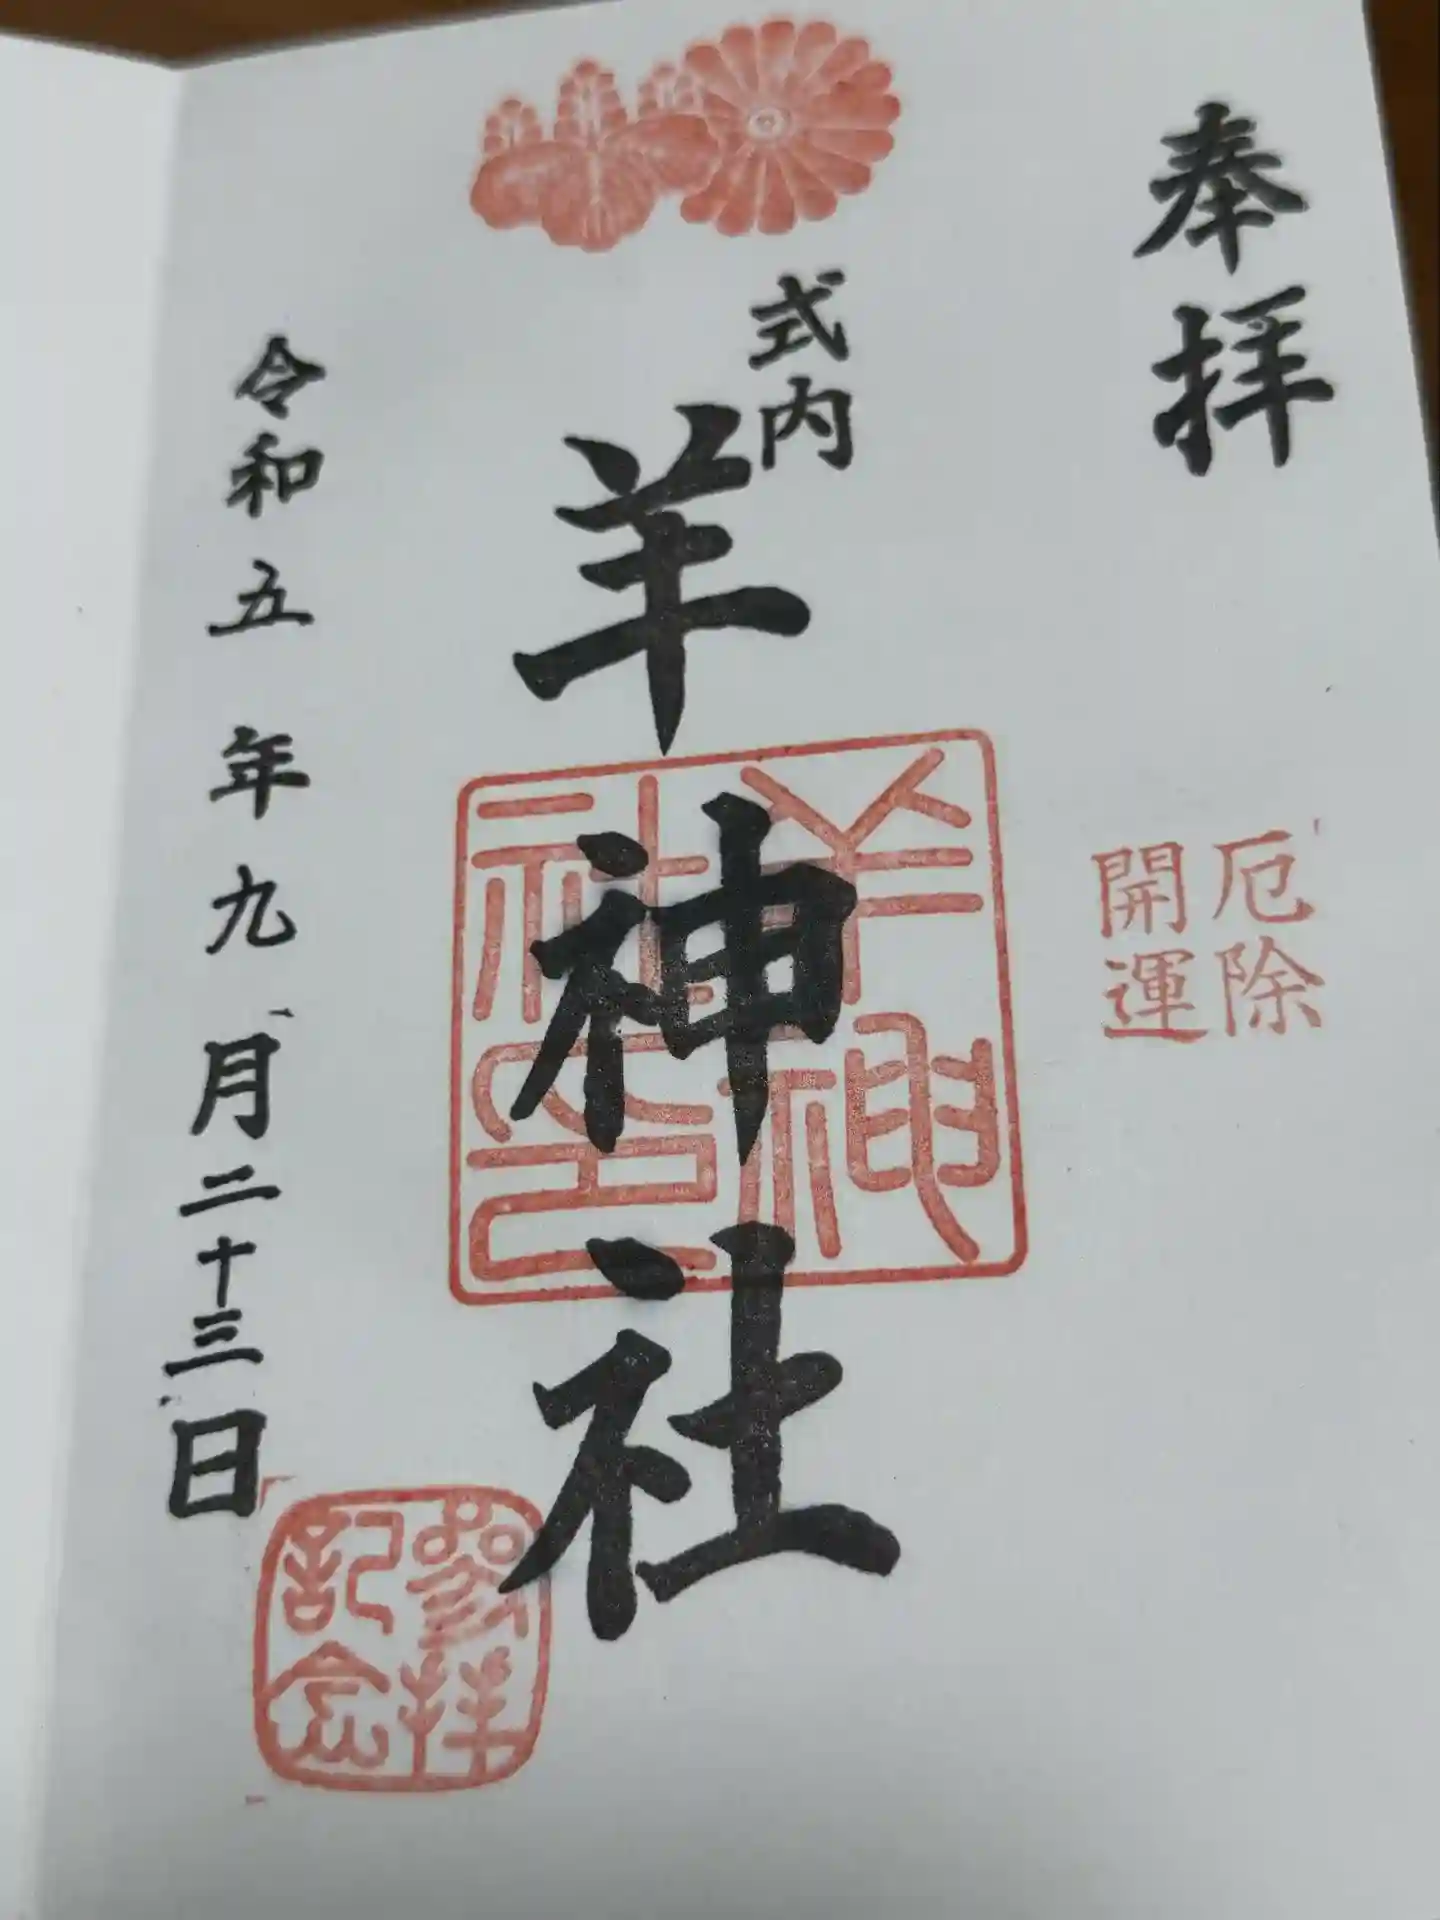 奉拝
厄除
開運
式内
羊神社
羊神
社印
令和五年九月二十三日
参拝
記念